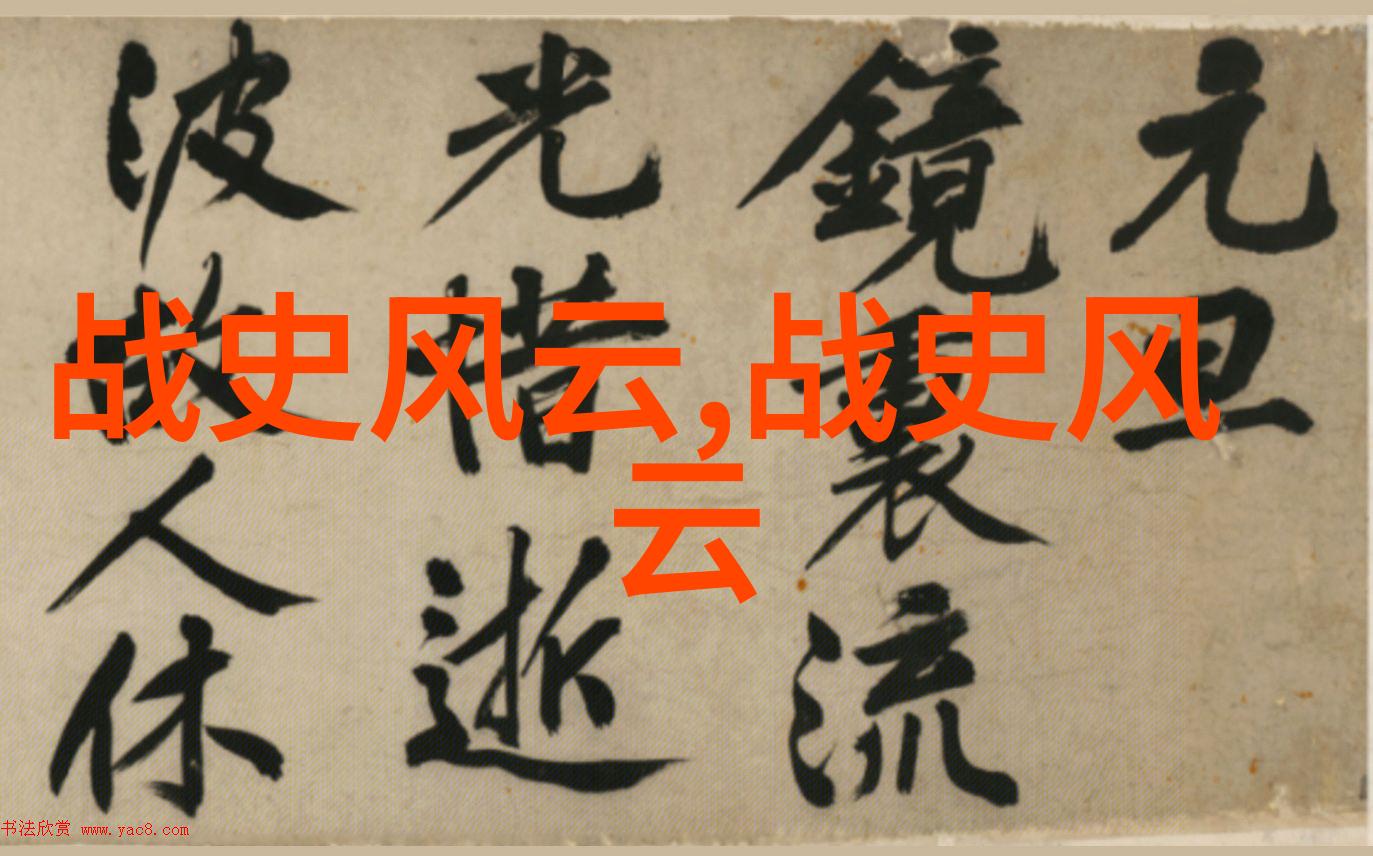 元旦
鏡裏流
光惜逝
波故人休
战史风云,战史风
云
书法欣赏 www.yac8.com